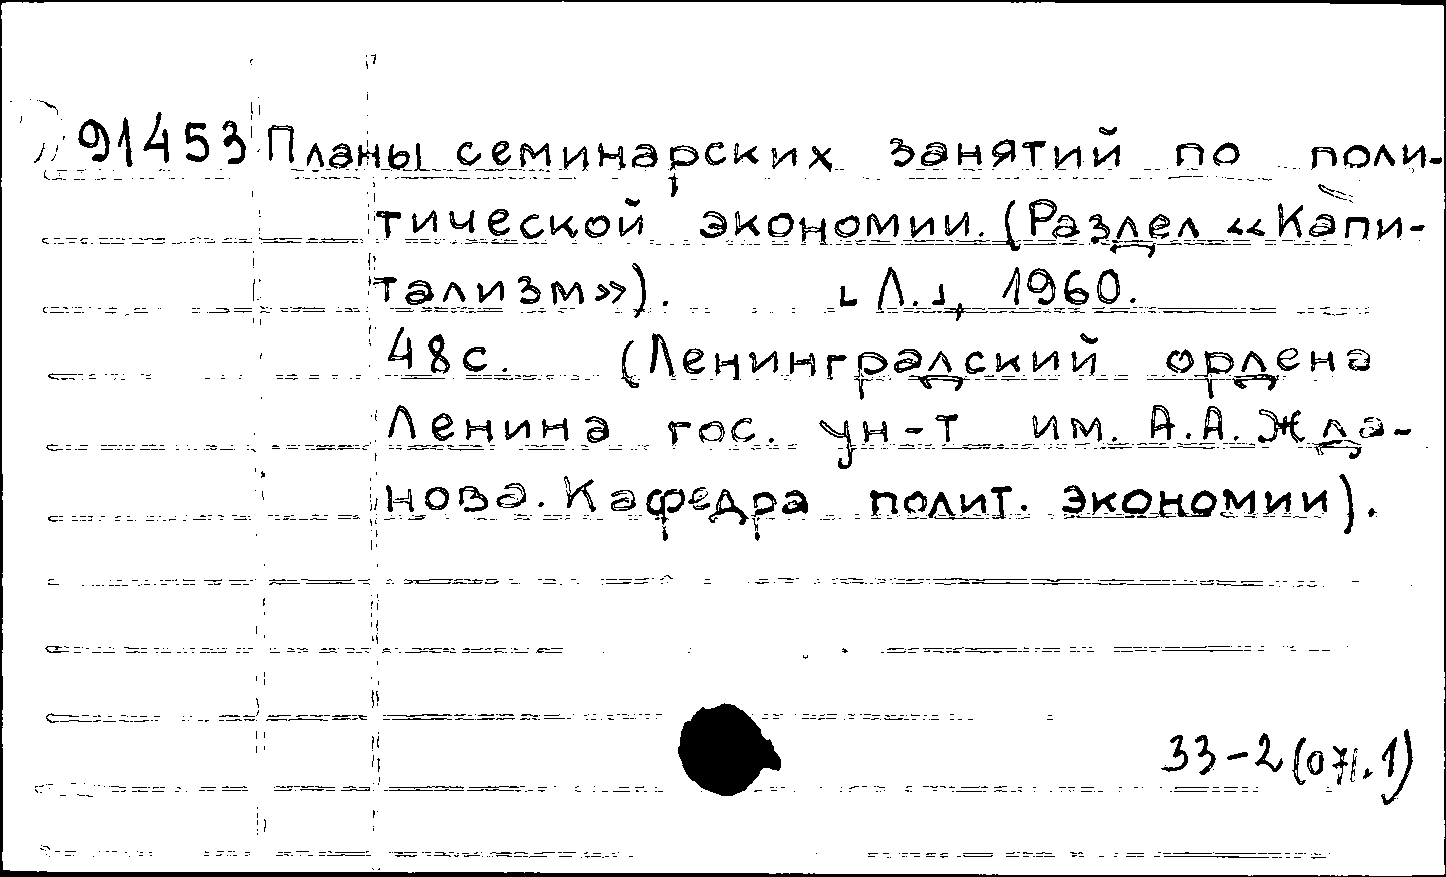 91453 Планы семинарских занятий по поли-
тической экономии. (Раздел «Капи-
тализм»). [Л.], 1960.
48с. (Ленинградский ордена
Ленина гос. ун-т им. А.А.Жда-
нова. Кафедра полит. экономии).
33-2(071.1)